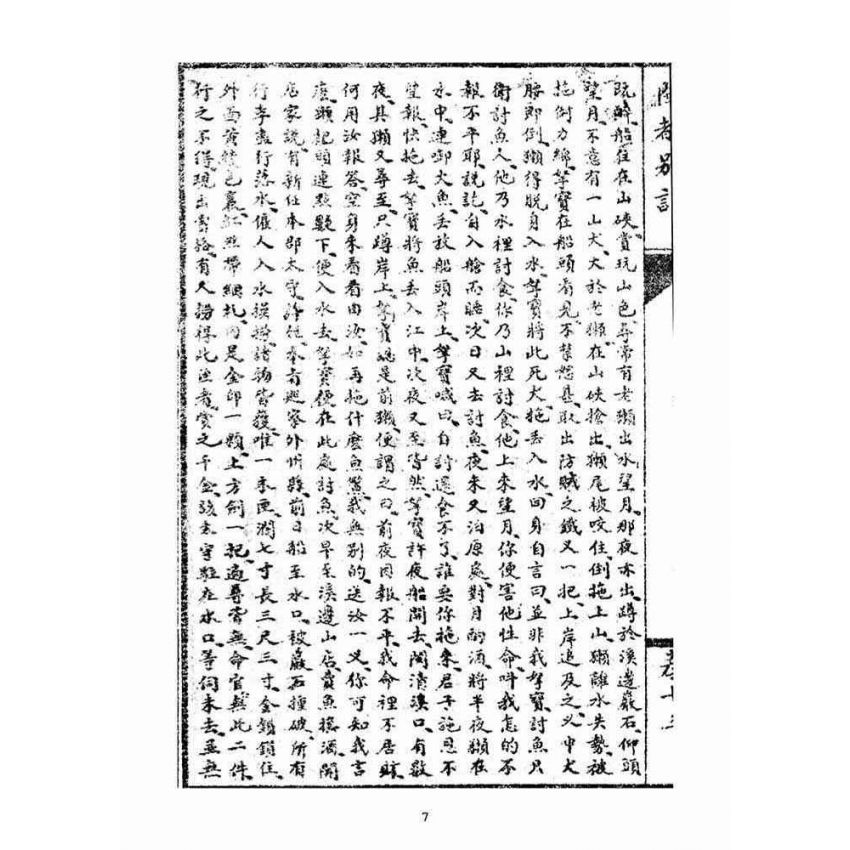 醒者別言
卷十五
既醉、船住在山硤、賞玩山色、尋常有老獺出水望月、那夜亦出、蹲於溪邊巖石、仰頭
望月、不意有一山犬、大於老獺、在山硤搶出、獺尾被咬住、倒拖上山、獺離水失勢、被
拖倒力綿、拏寶在船頭看見、不禁怒、取出防賊之鐵叉一把、上岸追及之、叉中犬
胺即倒、獺得脫身入水、拏寶將此死犬、拖丟入水、回身自言曰、並非我拏寶討魚只
衛討魚人、他乃水裡討食、你乃山裡討食、他上來望月、你便害他性命、叫我怎的不
報不平耶、說訖、自入艙而睡、次日又去討魚、夜來又泊原處、對月酌酒、將半夜、獺在
水中、連啣大魚、丟放船頭岸上、拏寶喊曰、自討還食不了、誰要你拖來、君子施恩不
望報、快拖去、拏寶將魚丟入江中、次夜又至、皆然、拏寶許夜船開去、閩清溪口、有數
夜、其獺又尋至、只蹲岸上、拏寶總是前獺、便謂之曰、前夜因報不平、我命裡不居財、
何用汝報答、空身來看看由汝、如再拖什麼魚鱉、我無別的、送汝一叉、你可知我言
麼、獺起頭連點數下、便入水去、拏寶便在此處討魚、次早至溪邊山店、賣魚換酒、聞
店家說、有新任本郡太守許、奉旨巡察外州縣、前日船至水口、被巖石撞破、所有
行李盡行落水、僱人入水摸撈、諸物皆獲、唯一木匣、濶七寸長三尺三寸、金鎖鎖住、
外面黃綾包裹、紅絲帶綑扎、內是金印一顆、上方劍一把、遍尋皆無、命官無此二件、
行之不得、現出賞格、有人撈得此匣者、賞之千金、該太守駐在水口、等伺來去、並無
7